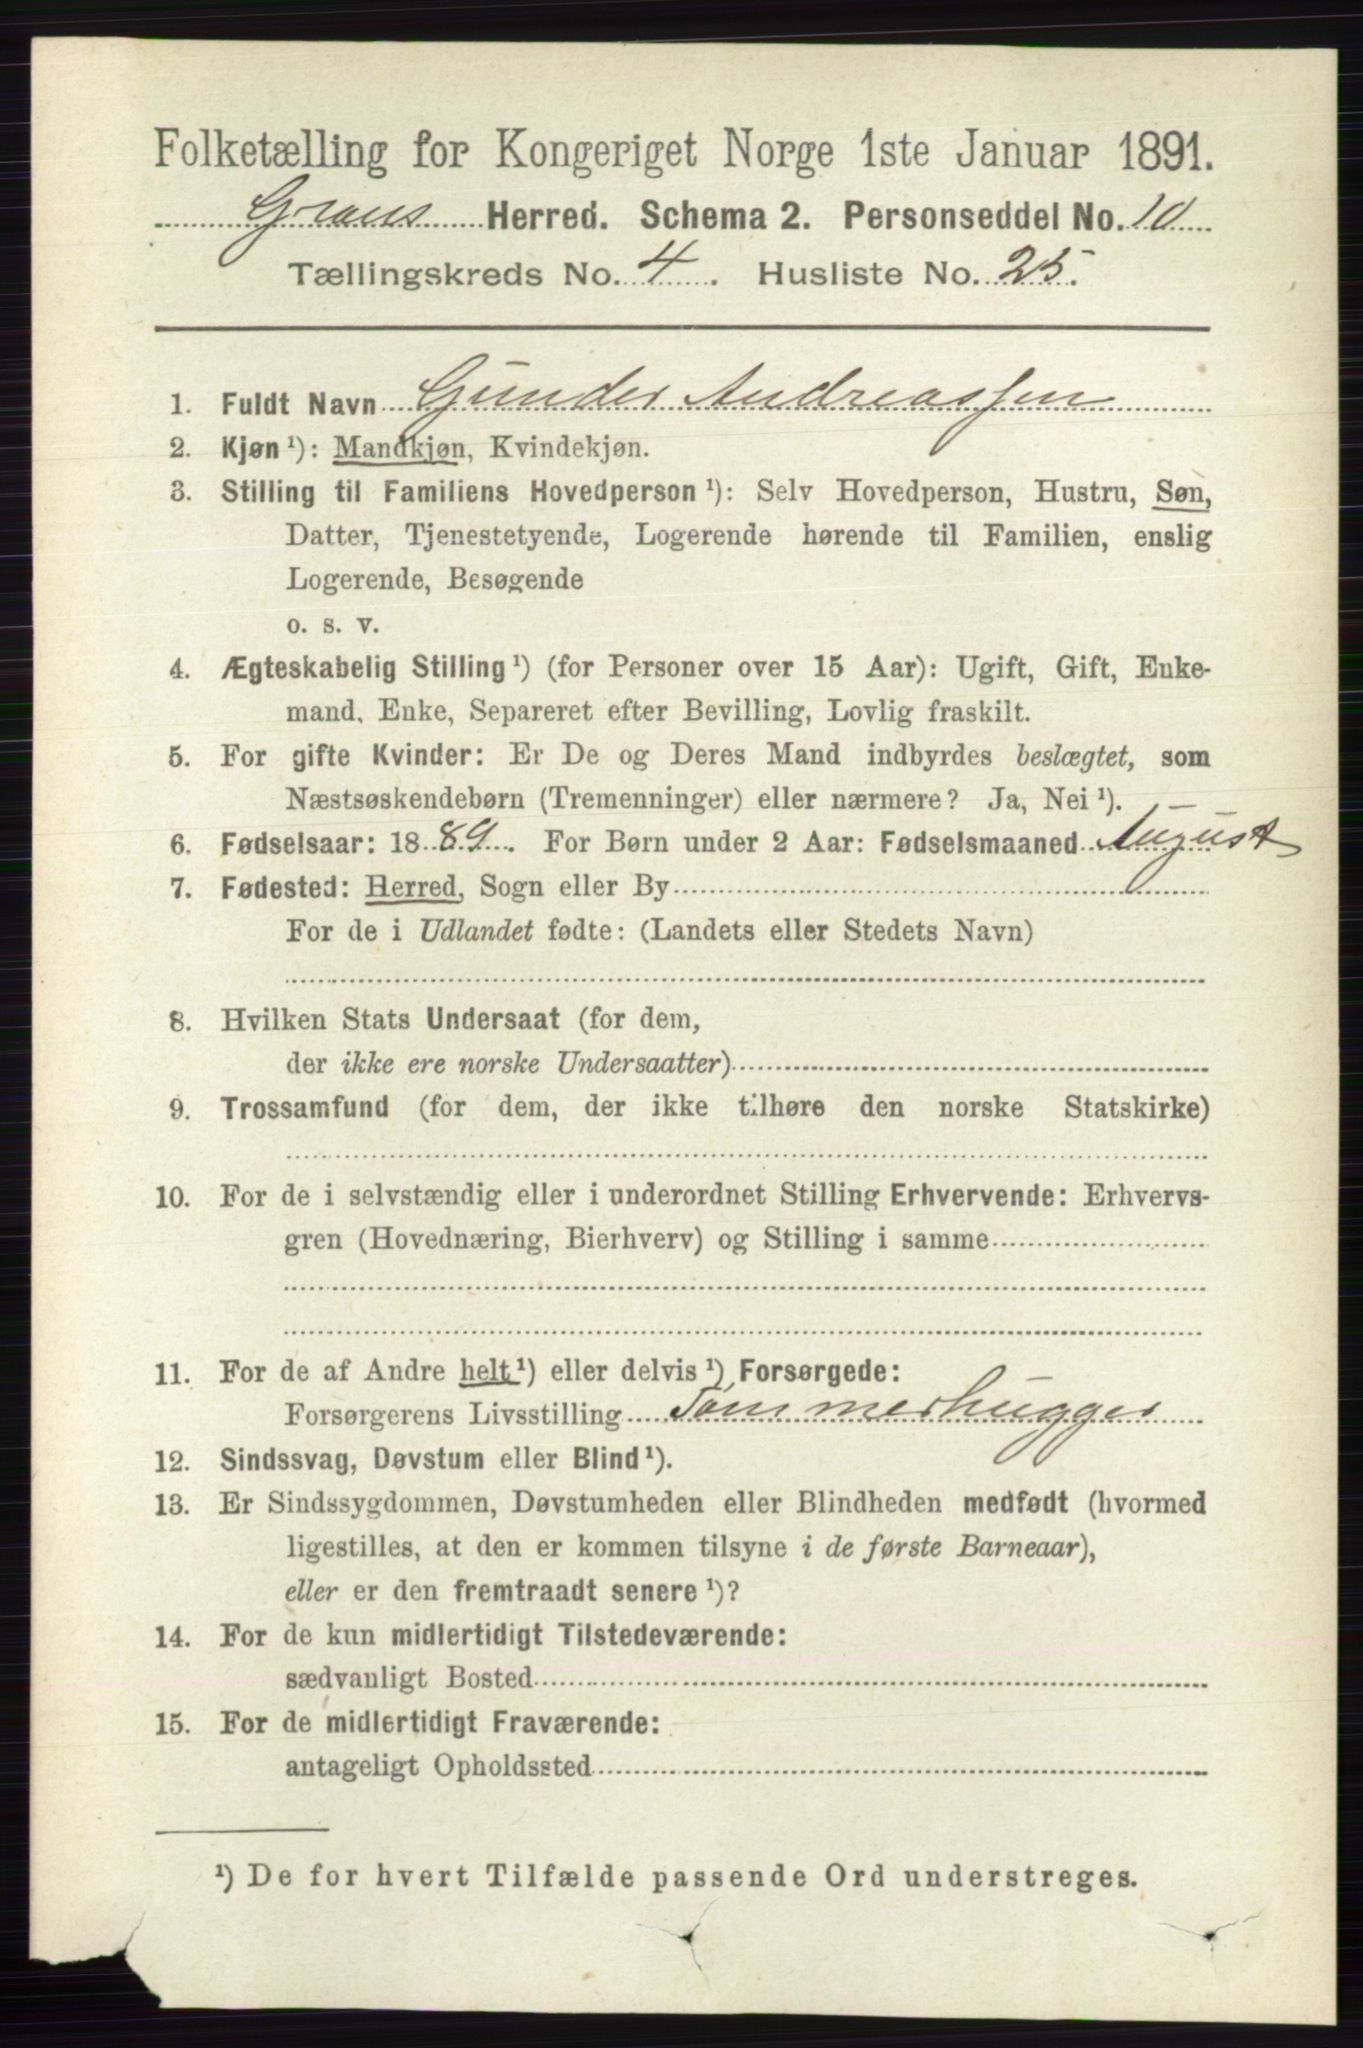 Folketælling for Kongeriget Norge 1ste Januar 1891.
Grans Herred. Schema 2. Personseddel No. 10
Tællingskreds No. 4. Husliste No. 25.
1. Fuldt Navn Gunder Andreassen
2. Kjøn ¹): Mandkjøn, Kvindekjøn.
3. Stilling til Familiens Hovedperson ¹): Selv Hovedperson, Hustru, Søn,
Datter, Tjenestetyende, Logerende hørende til Familien, enslig
Logerende, Besøgende
o. s. v.
4. Ægteskabelig Stilling ¹) (for Personer over 15 Aar): Ugift, Gift, Enke-
mand, Enke, Separeret efter Bevilling, Lovlig fraskilt.
5. For gifte Kvinder: Er De og Deres Mand indbyrdes beslægtet, som
Næstsøskendebørn (Tremenninger) eller nærmere? Ja, Nei ¹).
6. Fødselsaar: 1889. For Børn under 2 Aar: Fødselsmaaned August
7. Fødested: Herred, Sogn eller By
For de i Udlandet fødte: (Landets eller Stedets Navn)
8. Hvilken Stats Undersaat (for dem,
der ikke ere norske Undersaatter)
9. Trossamfund (for dem, der ikke tilhøre den norske Statskirke)
10. For de i selvstændig eller i underordnet Stilling Erhvervende: Erhvervs-
gren (Hovednæring, Bierhverv) og Stilling i samme
11. For de af Andre helt ¹) eller delvis ¹) Forsørgede:
Forsørgerens Livsstilling Tømmerhugger
12. Sindssvag, Døvstum eller Blind ¹).
13. Er Sindssygdommen, Døvstumheden eller Blindheden medfødt (hvormed
ligestilles, at den er kommen tilsyne i de første Barneaar),
eller er den fremtraadt senere ¹)?
14. For de kun midlertidigt Tilstedeværende:
sædvanligt Bosted
15. For de midlertidigt Fraværende:
antageligt Opholdssted
¹) De for hvert Tilfælde passende Ord understreges.